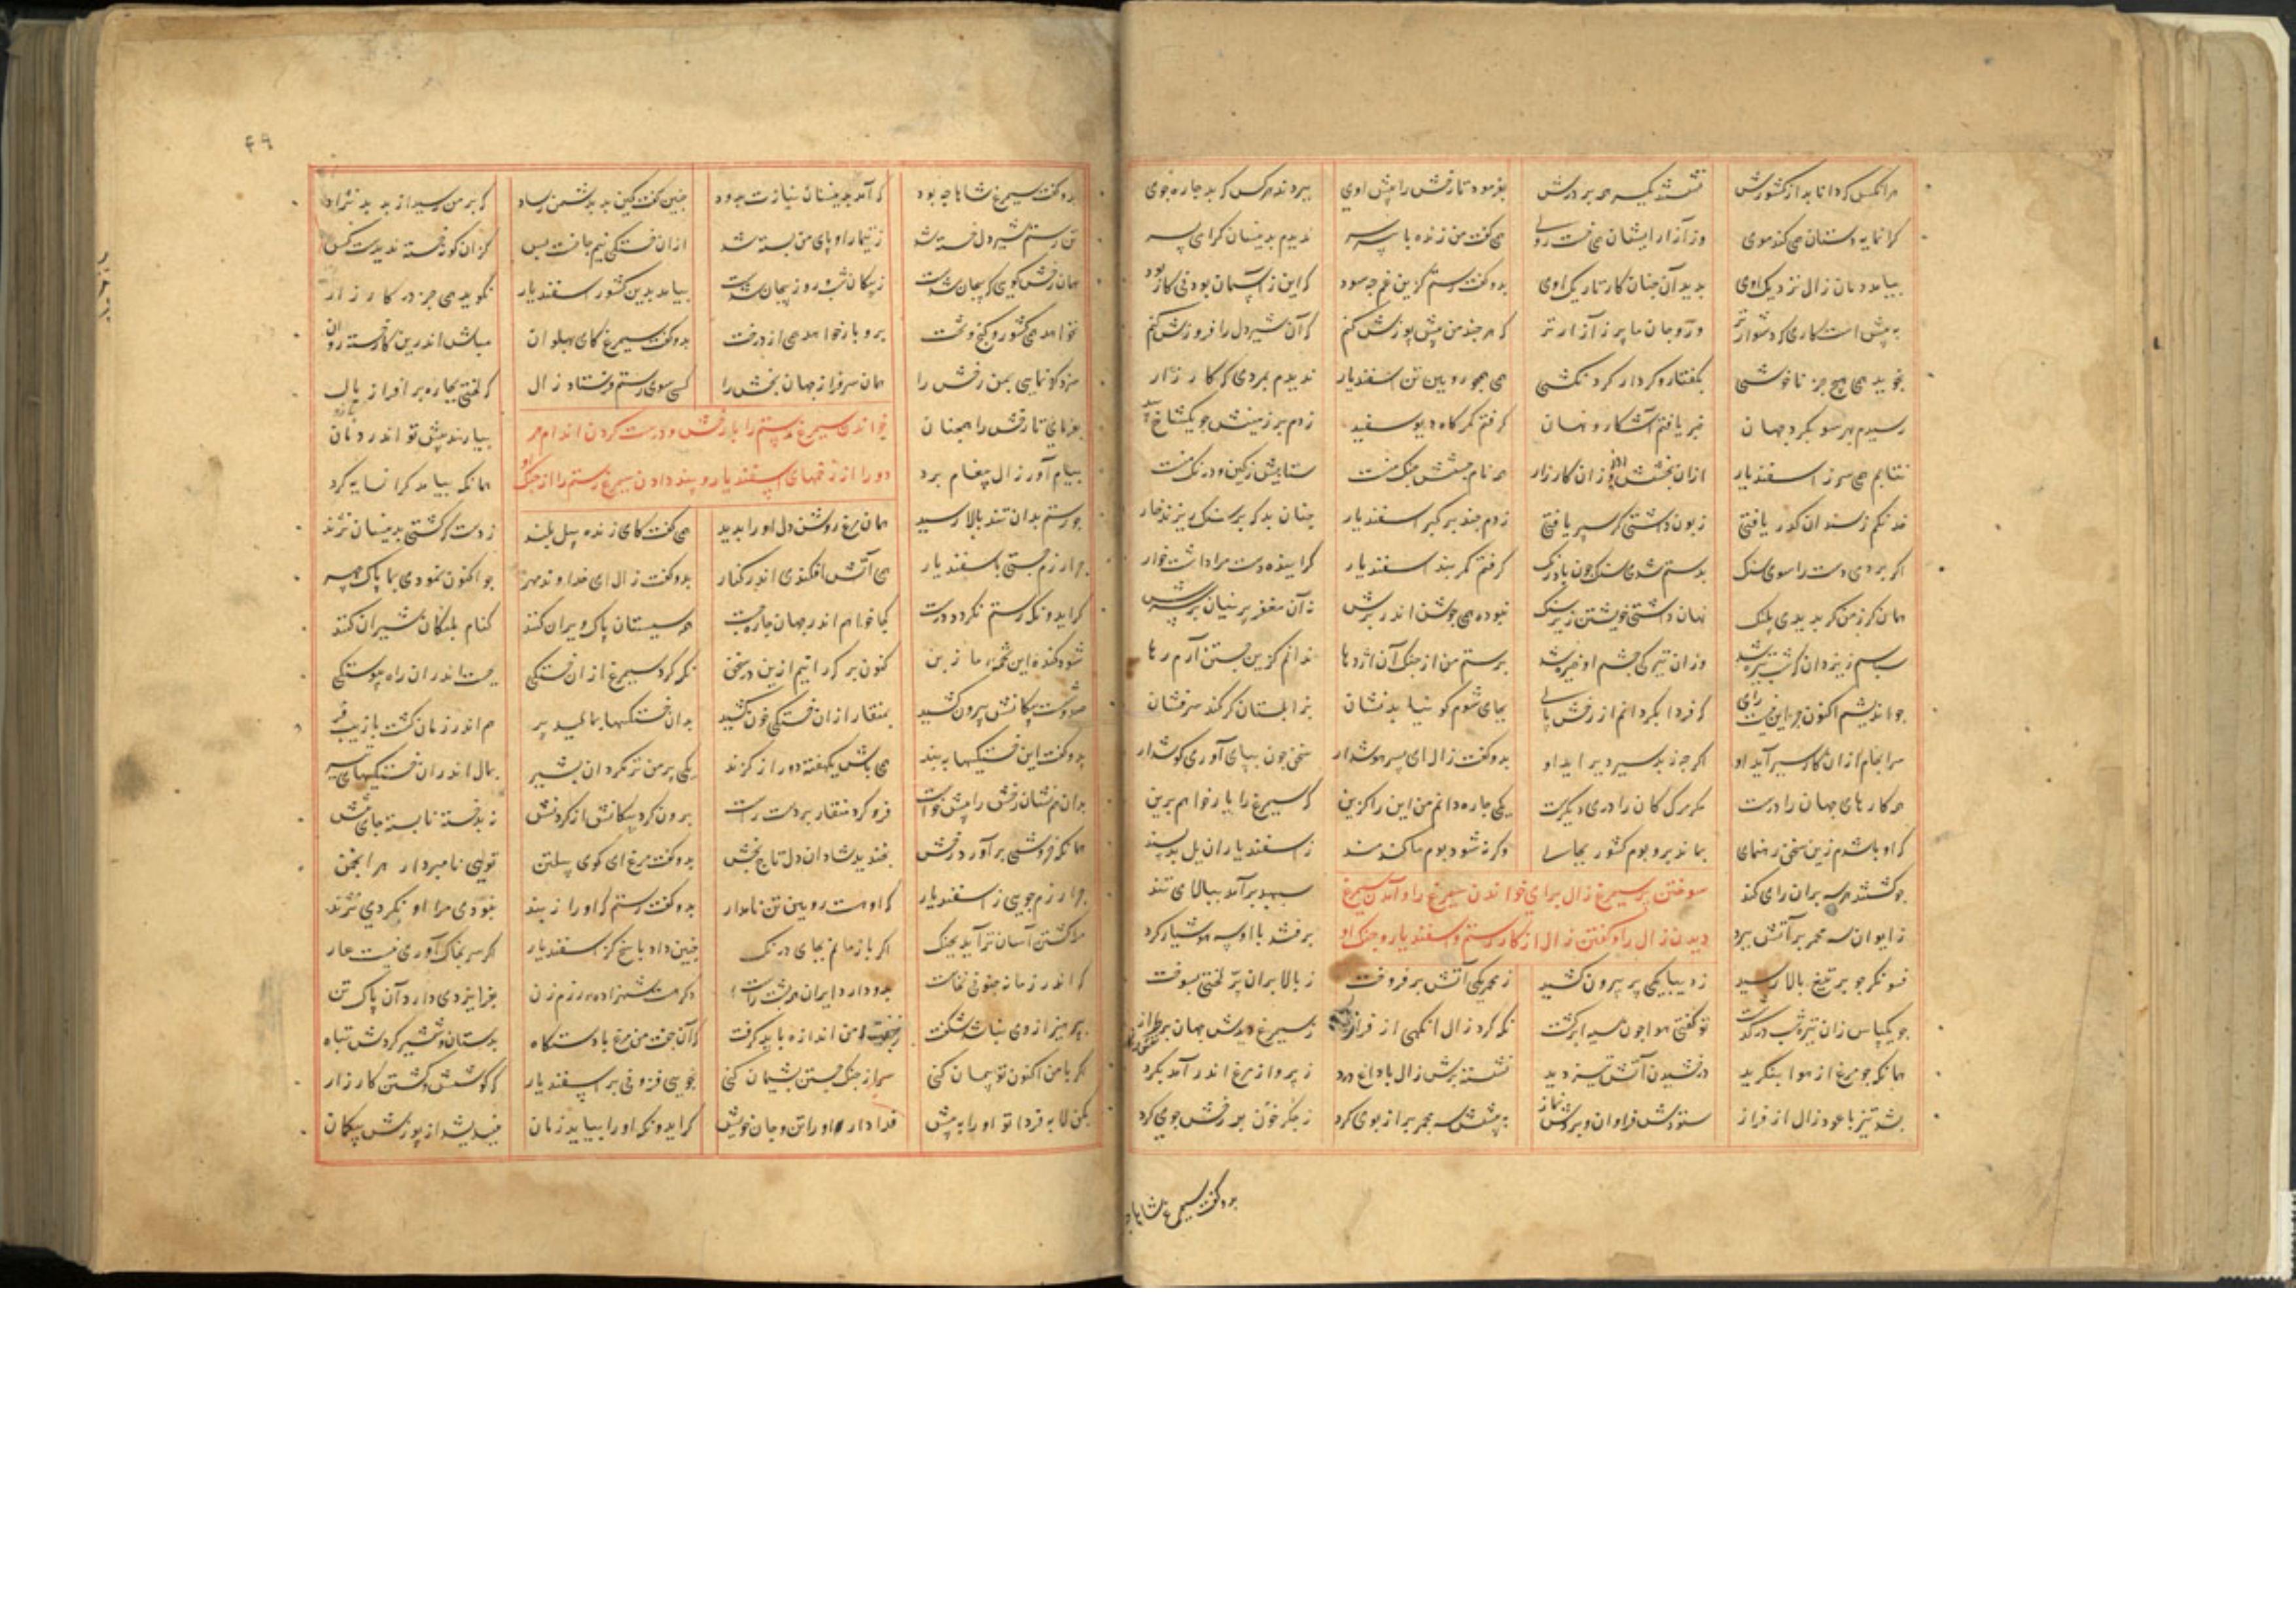 هر انکس که دانا بد از کشورش نشستند یکسر همه بر درش بفرمود تا رخش را پیش اوی ببردند هر کس که بد جاره جوی
کرانمایه دستان همی کند موی وز آزار ایشان همی خست روی همی کفت من زنده با پیر سر ندیدم بدینسان کرامی پسر
بیامد دمان زال نزدیک اوی بدید آن جنان کار تاریک اوی بدو کفت رستم کزین غم جه سود که این ز آسمان بودنی کار بود
به پیش است کاری که دشوارتر وزو جان ما پر ز آزارتر که هر جند من پیش پوزش کنم که آن شیردل را فروزش کنم
نجوید همی هیچ جز ناخوشی بکفتار و کردار کردنکشی همی جو رویین تن اسفندیار ندیدم بمردی که کارزار
رسیدم بهر سو بکرد جهان خبر یافتم آشکار و نهان کرفتم کمرکاه دیو سفید زدم بر زمینش جو یکشاخ بید
نتابم همی سر ز اسفندیار ازان بخشش و زور ان کارزار
خدنکم ز سندان کذر یافتی زبون داشتی کر سپر یافتی زدم جند بر کبر اسفندیار جنان بد که بر سنک ریزند خار
اکر بردمی دست را سوی سنک بدستم شدی سنک جون بادرنک کرفتم کمربند اسفندیار کراینده دست مرا داشت خوار
همان کرز من کر بدیدی پلنک نهان داشتی خویشتن زیر سنک نبوده همی جوشن اندر برش نه آن مغفر پرنیان بر سرش
سپاسم ز یزدان که شب تیره شد وزان تیرکی جشم او خیره شد برستم من از جنک آن اژدها ندانم کزین جستن آیم رها
جو اندیشم اکنون جز این نیست رای که فردا بکردانم از رخش پای بجای شوم کو نیابد نشان بزابلستان کر کند سرفشان
سرانجام ازان کار سیر آید او اکر جه ز بد سیر دیر اید او بدو کفت زال ای پسر هوشدار سخن جون بپای آوری کوشدار
همه کارهای جهان را درست مکر مرک کان را دری دیکرست یکی جاره دانم من این را کزین که سیمرغ را یار خوانم برین
کر او باشدم زین سخن رهنمای بماند بر و بوم کشور بجای وکرنه شود بوم ما کندمند ز اسفندیار ان یل بدپسند
جو کشتند هر سه بران رای کند سپهبد برآمد ببالای تند
سوختن پر سیمرغ زال برای خواندن سیمرغ را و آمدن سیمرغ
ز ایوان سه مجمر بر آتش ببرد برفتند با او سه هوشیار کرد
دیدن زال را و کفتن زال از کار رستم و اسفندیار و جنک او
فسونکر جو بر تیغ بالا رسید ز دیبا یکی پر بیرون کشید ز مجمر یکی آتش برفروخت ز بالا بران پر لختی بسوخت
جو یکپاس زان تیره شب درکذشت تو کفتی هوا جون سیه ابر کشت نکه کرد زال انکهی از فراز ز سیمرغ دیدش جهان پر طراز
همانکه جو مرغ از هوا بنکرید درخشیدن آتش تیز دید نشسته برش زال با داغ و درد ز پرواز مرغ اندر آمد بکرد
بشد تیز با عود زال از فراز ستودش فراوان و بردش نماز به پیشش سه مجمر پر از بوی کرد ز خون جکر بر رخش جوی کرد
بدو کفت سیمرغ شاها جه
۴۹
بدو کفت سیمرغ شاها جه بود که آمد بدینسان نیازت بدود جنین کفت کین بد بدشمن رساد که بر من رسید از بد بدنژاد
تن رستم شیردل خسته شد ز تیمار او پای من بسته شد ازان خستکی بیم جانست بس کزان کونه خسته ندیدست کس
همان رخش کویی که بیجان شدست ز پیکان شب و روز پیجان شدست بیامد بدین کشور اسفندیار نکوبد همی جز در کارزار
نخواهد همی کشور و کنج و تخت بر و بار خواهد همی از درخت بدو کفت سیمرغ کای پهلوان مباش اندرین کار خسته روان
سزد کر نمایی بمن رخش را همان سرفراز جهان بخش را کسی سوی رستم فرستاد زال که لختی بجاره برافراز یال
بفرمای تا رخش را همجنان بیارند پیش تو اندر دمان
خواندن سیمرغ رستم را با رخش و درست کردن اندام هر
پیام آور زال پیغام برد همانکه بیامد کرانمایه کرد
دو را از زخمهای اسفندیار و پند دادن سیمرغ رستم را از جنک او
جو رستم بدان تند بالا رسید همان مرغ روشن دل او را بدید همی کفت کای ژنده پیل بلند ز دست که کشتی بدینسان نژند
جرا رزم جستی باسفندیار همی آتش افکندی اندر کنار بدو کفت زال ای خداوند مهر جو اکنون نمودی بما پاک جهر
کر ایدونکه رستم نکردد درست کجا خواهم اندر جهان جاره جست همه سیستان پاک ویران کنند کنام پلنکان و شیران کنند
شود کنده این تخمه ما ز بن کنون بر که رانیم ازین در سخن نکه کرد سیمرغ ازان خستکی بجست اندران راه پیوستکی
بمنقار ازان خستکی خون کشید بدان خستکیها بمالید پر هم اندر زمان کشت با زیب و فر
بدو کفت این خستکیها ببند همی باش یکهفته دور از کزند یکی پر من تر بکردان بشیر بمال اندران خستکیهای تیر
بدان هم نشان رخش را پیش خواست فرو کرد منقار بر دست راست برون کرد پیکانش از کردنش نبد خسته نابسته جای تنش
همانکه خروشی برآورد رخش بخندید شادان دل تاج بخش بدو کفت مرغ ای کوی پیلتن تویی نامبردار هر انجمن
جرا رزم جویی ز اسفندیار که او هست رویین تن نامدار بدو کفت رستم کر او را ز بند نبودی مرا او نکردی نژند
مرا کشتن آسان تر آید ز جنک اکر بازمانم بجای درنک جنین داد پاسخ کز اسفندیار اکر سر بخاک آوری نیست عار
که اندر زمانه جنویی نخاست بدو دارد ایران همی پشت راست
بپرهیز از وی نباشد شکفت مرا از من اندازه باید کرفت که آن جفت من مرغ با دستکاه بدستان و شمشیر کردش تباه
اکر با من اکنون تو پیمان کنی سر از جنک جستن پشیمان کنی نجویی فزونی بر اسفندیار که کوشش و کشتن کارزار
بکن لابه فردا تو او را به پیش فدا دار او را تن و جان خویش کر ایدونکه او را بیاید زمان نیندیشد از پوزشت بیکمان